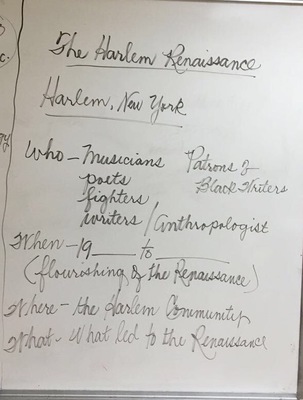 The Harlem Renaissance
Harlem, New York
Who - Musicians
poets
fighters
writers / Anthropologist
Patrons of
Black Writers
When - 19___ to
(flourishing of the Renaissance)
Where - the Harlem Community
What - What led to the Renaissance